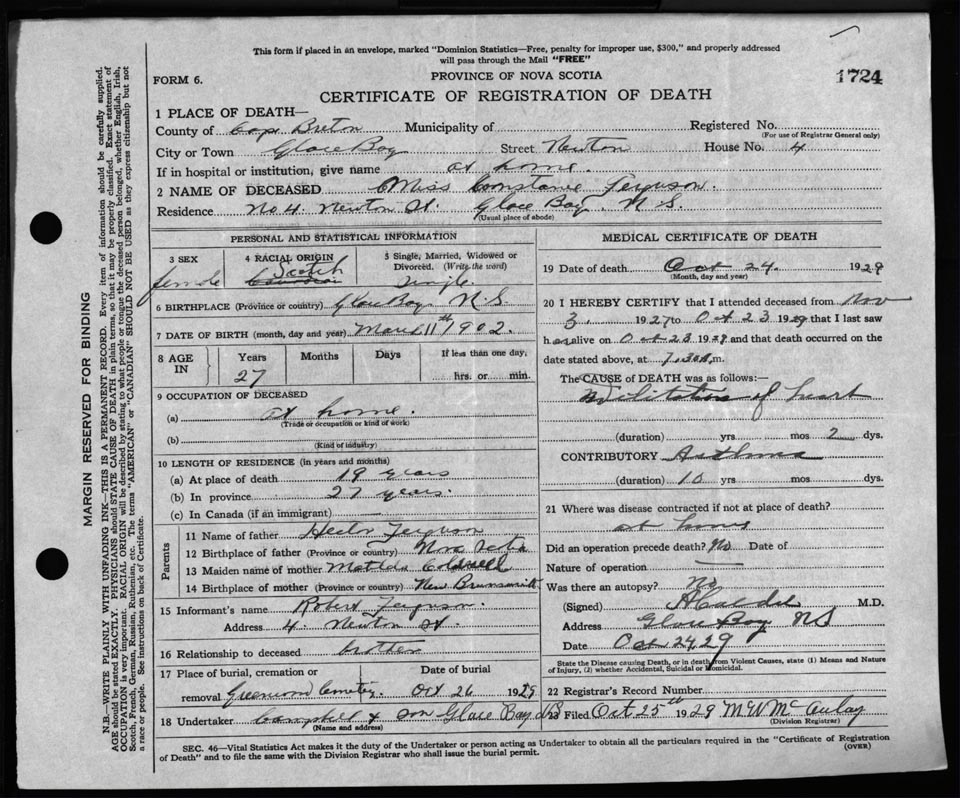 This form if placed in an envelope, marked "Dominion Statistics—Free, penalty for improper use, $300," and properly addressed
will pass through the Mail "FREE"
FORM 6.
PROVINCE OF NOVA SCOTIA
1724
CERTIFICATE OF REGISTRATION OF DEATH
1 PLACE OF DEATH—
County of Cape Breton Municipality of Registered No.
(For use of Registrar General only)
City or Town Glace Bay Street Newton House No. 4
If in hospital or institution, give name at home.
2 NAME OF DECEASED Miss Constance Ferguson.
Residence No 4. Newton St. Glace Bay. N.S.
(Usual place of abode)
PERSONAL AND STATISTICAL INFORMATION
3 SEX
female
4 RACIAL ORIGIN
Scotch
Canadian
5 Single, Married, Widowed or
Divorced. (Write the word)
Single.
6 BIRTHPLACE (Province or country) Glace Bay. N.S.
7 DATE OF BIRTH (month, day and year) March 11th 1902.
8 AGE
IN
Years
27
Months
Days
If less than one day,
hrs. or min.
9 OCCUPATION OF DECEASED
(a) at home.
(Trade or occupation or kind of work)
(b)
(Kind of industry)
10 LENGTH OF RESIDENCE (in years and months)
(a) At place of death 19 years
(b) In province 27 years.
(c) In Canada (if an immigrant)
Parents
11 Name of father Ferguson
12 Birthplace of father (Province or country) Nova Scotia
13 Maiden name of mother Matilda
14 Birthplace of mother (Province or country) New Brunswick
15 Informant's name Robert Ferguson.
Address 4. Newton St.
16 Relationship to deceased brother
17 Place of burial, cremation or
removal Greenwood Cemetery.
Date of burial
Oct 26 1929
18 Undertaker Campbell & Son Glace Bay NS
(Name and address)
MEDICAL CERTIFICATE OF DEATH
19 Date of death Oct 24. 1929
(Month, day and year)
20 I HEREBY CERTIFY that I attended deceased from Nov
3. 1927 to Oct 23 1929 that I last saw
her alive on Oct 23 1929 and that death occurred on the
date stated above, at 7.30 m.
The CAUSE of DEATH was as follows:—
of heart
(duration) yrs mos 2 dys.
CONTRIBUTORY Asthma
(duration) 10 yrs mos dys.
21 Where was disease contracted if not at place of death?
at home
Did an operation precede death? No Date of
Nature of operation
Was there an autopsy? No
(Signed) M.D.
Address Glace Bay NS
Date Oct 24, 29
State the Disease causing Death, or in death from Violent Causes, state (1) Means and Nature
of Injury, (2) whether Accidental, Suicidal or Homicidal.
22 Registrar's Record Number
23 Filed Oct 25th 1929 McAulay
(Division Registrar)
SEC. 46—Vital Statistics Act makes it the duty of the Undertaker or person acting as Undertaker to obtain all the particulars required in the "Certificate of Registration
of Death" and to file the same with the Division Registrar who shall issue the burial permit.
(OVER)
MARGIN RESERVED FOR BINDING
N.B.—WRITE PLAINLY WITH UNFADING INK—THIS IS A PERMANENT RECORD. Every item of information should be carefully supplied.
AGE should be stated EXACTLY. PHYSICIANS should STATE CAUSE OF DEATH in plain terms, so that it may be properly classified. Exact statement of
OCCUPATION is very important. RACIAL ORIGIN will be described by stating to what people or tongue the deceased person belonged, whether English, Irish,
Scotch, French, German, Russian, Ruthenian, etc. The terms "AMERICAN" or "CANADIAN" SHOULD NOT BE USED as they express citizenship but not
a race or people. See instructions on back of Certificate.